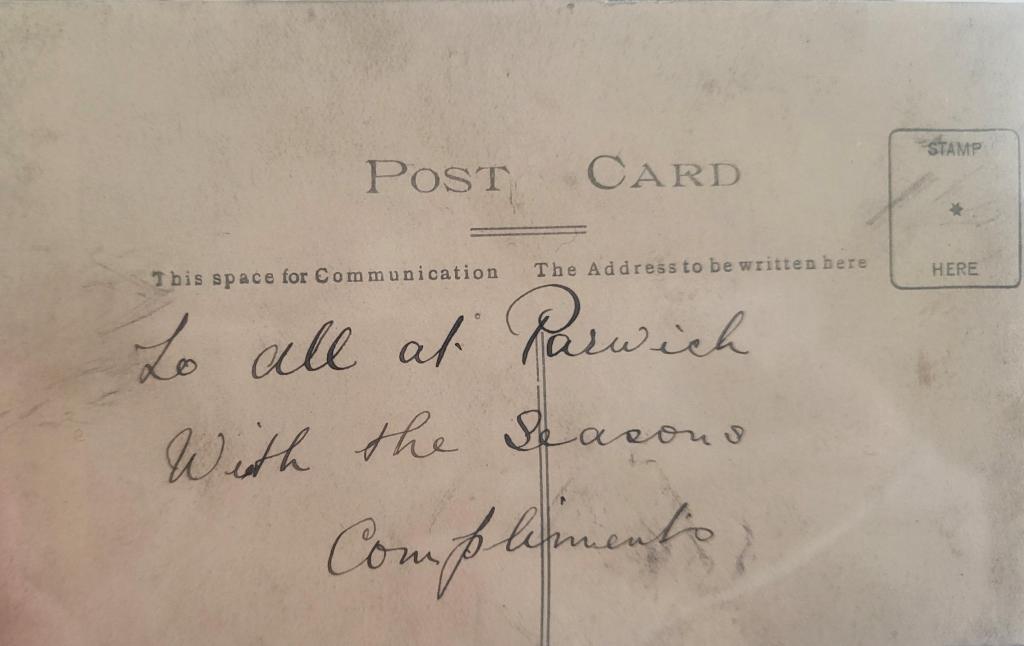 POST CARD
STAMP
HERE
This space for Communication
The Address to be written here
To all at Parwich
With the Seasons
Compliments